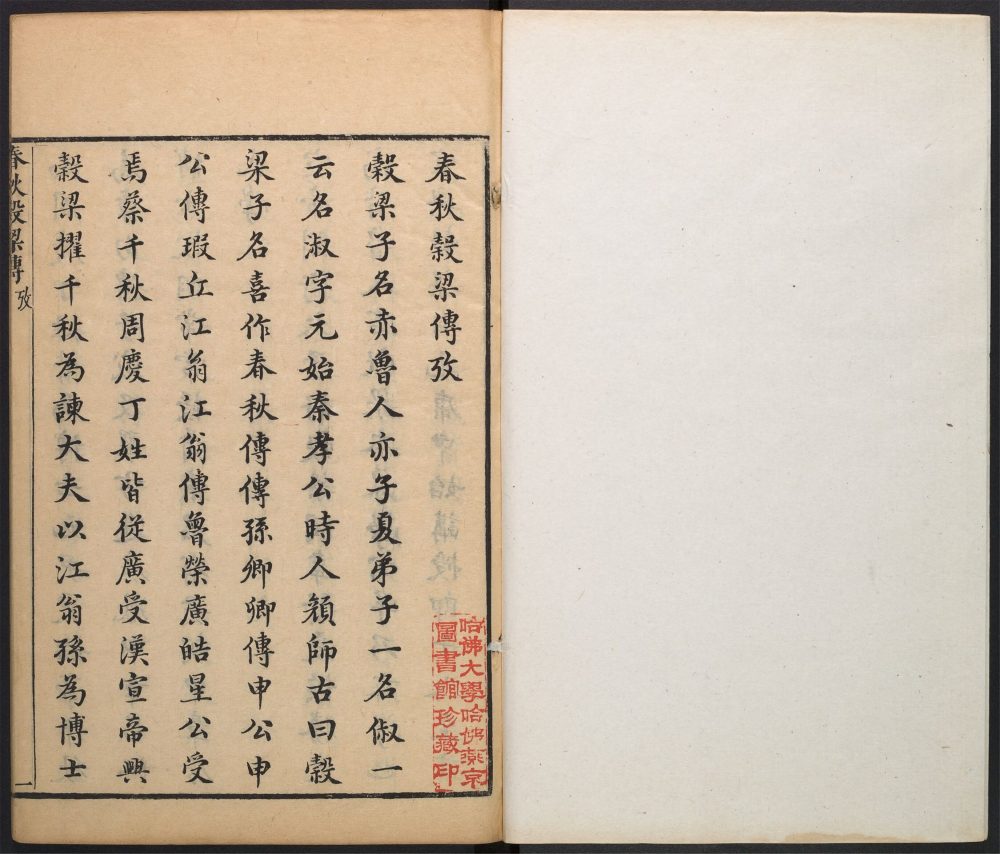 春秋穀梁傳攷
穀梁子名赤魯人亦子夏弟子一名俶一
云名淑字元始秦孝公時人顏師古曰穀
梁子名喜作春秋傳傳孫卿卿傳申公申
公傳瑕丘江翁江翁傳魯榮廣皓星公受
焉蔡千秋周慶丁姓皆從廣受漢宣帝興
穀梁擢千秋為諫大夫以江翁孫為博士
春秋穀梁傳 攷
一
哈佛大學哈佛燕京
圖書館珍藏印